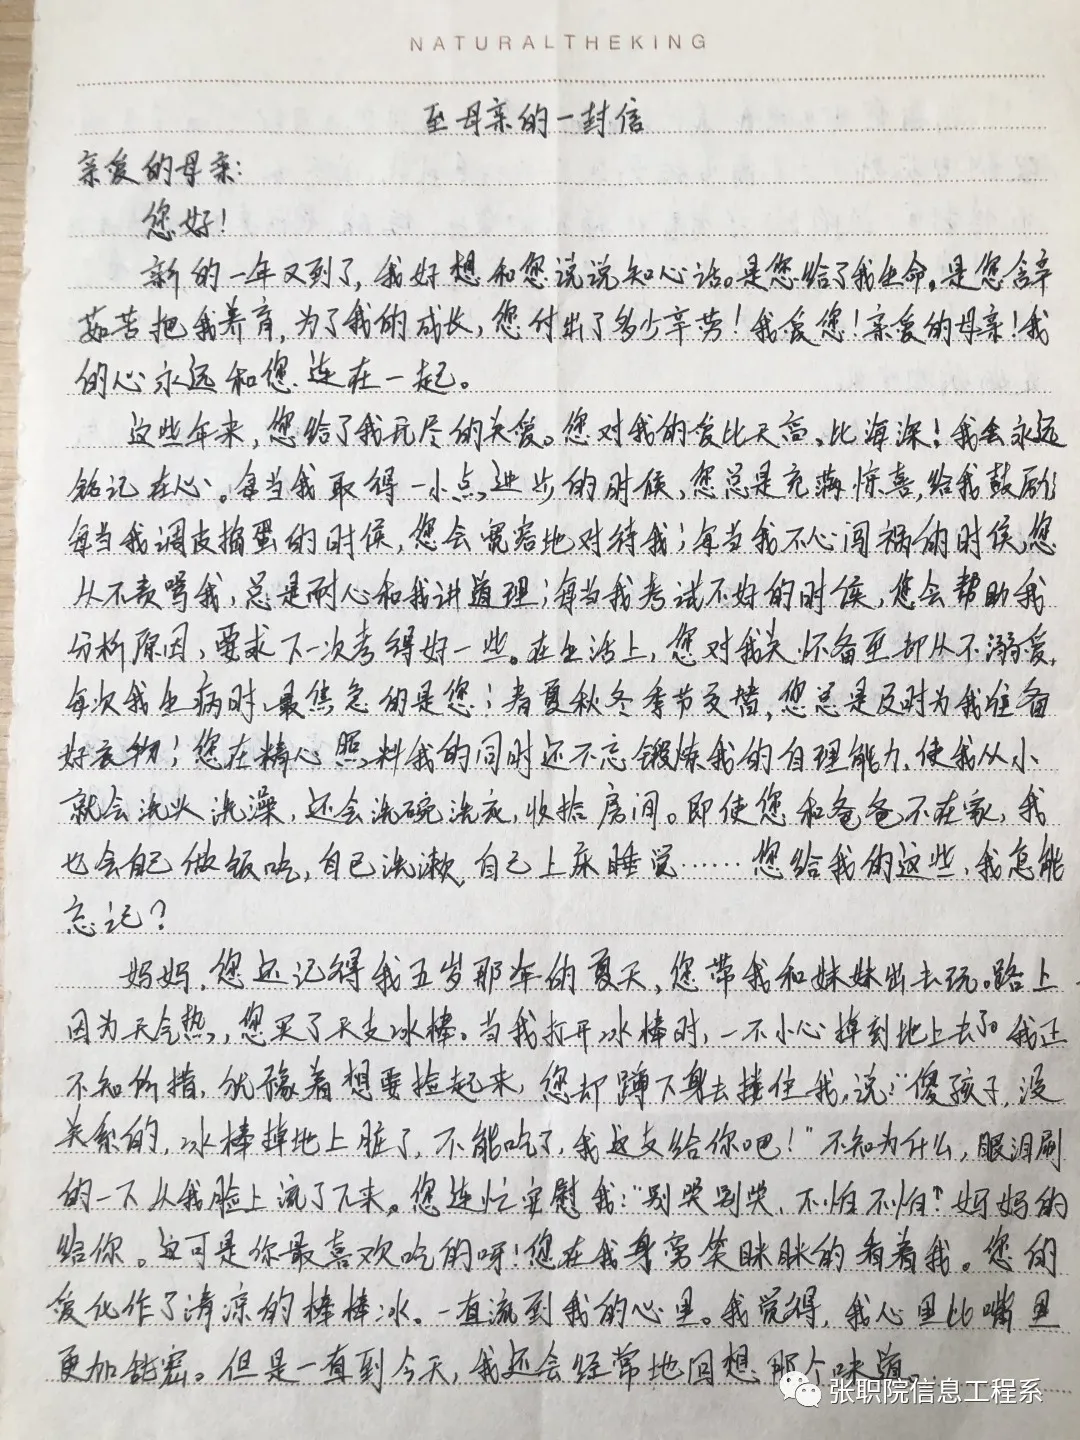 NATURALTHEKING
至母亲的一封信
亲爱的母亲:
您好!
新的一年又到了,我好想和您说说知心话。是您给了我生命,是您含辛
茹苦把我养育,为了我的成长,您付出了多少辛劳!我爱您!亲爱的母亲!我
的心永远和您连在一起。
这些年来,您给了我无尽的关爱。您对我的爱比天高,比海深!我会永远
铭记在心。每当我取得一小点进步的时候,您总是充满惊喜,给我鼓励;
每当我调皮捣蛋的时候,您会宽容地对待我;每当我不心闯祸的时候,您
从不责骂我,总是耐心和我讲道理;每当我考试不好的时候,您会帮助我
分析原因,要求下一次考得好一些。在生活上,您对我关怀备至却从不溺爱,
每次我生病时,最焦急的是您;春夏秋冬季节交替,您总是及时为我准备
好衣物;您在精心照料我的同时还不忘锻炼我的自理能力,使我从小
就会洗头洗澡,还会洗碗洗衣,收拾房间。即使您和爸爸不在家,我
也会自己做饭吃,自己洗漱,自己上床睡觉……您给我的这些,我怎能
忘记?
妈妈,您还记得我五岁那年的夏天,您带我和妹妹出去玩。路上
因为天气热,您买了天支冰棒。当我打开冰棒时,一不小心掉到地上去了。我正
不知所措,犹豫着想要捡起来,您却蹲下身去搂住我,说:"傻孩子,没
关系的,冰棒掉地上脏了,不能吃了,我这支给你吧!"不知为什么,眼泪刷
的一下从我脸上流了下来。您连忙安慰我:"别哭别哭,不怕不怕,妈妈的
给你。这可是你最喜欢吃的呀!您在我身旁笑眯眯的看着我。您的
爱化作了清凉的棒棒冰,一直流到我的心里。我觉得,我心里比嘴里
更加甜蜜。但是一直到今天,我还会经常地回想那个味道。
张职院信息工程系